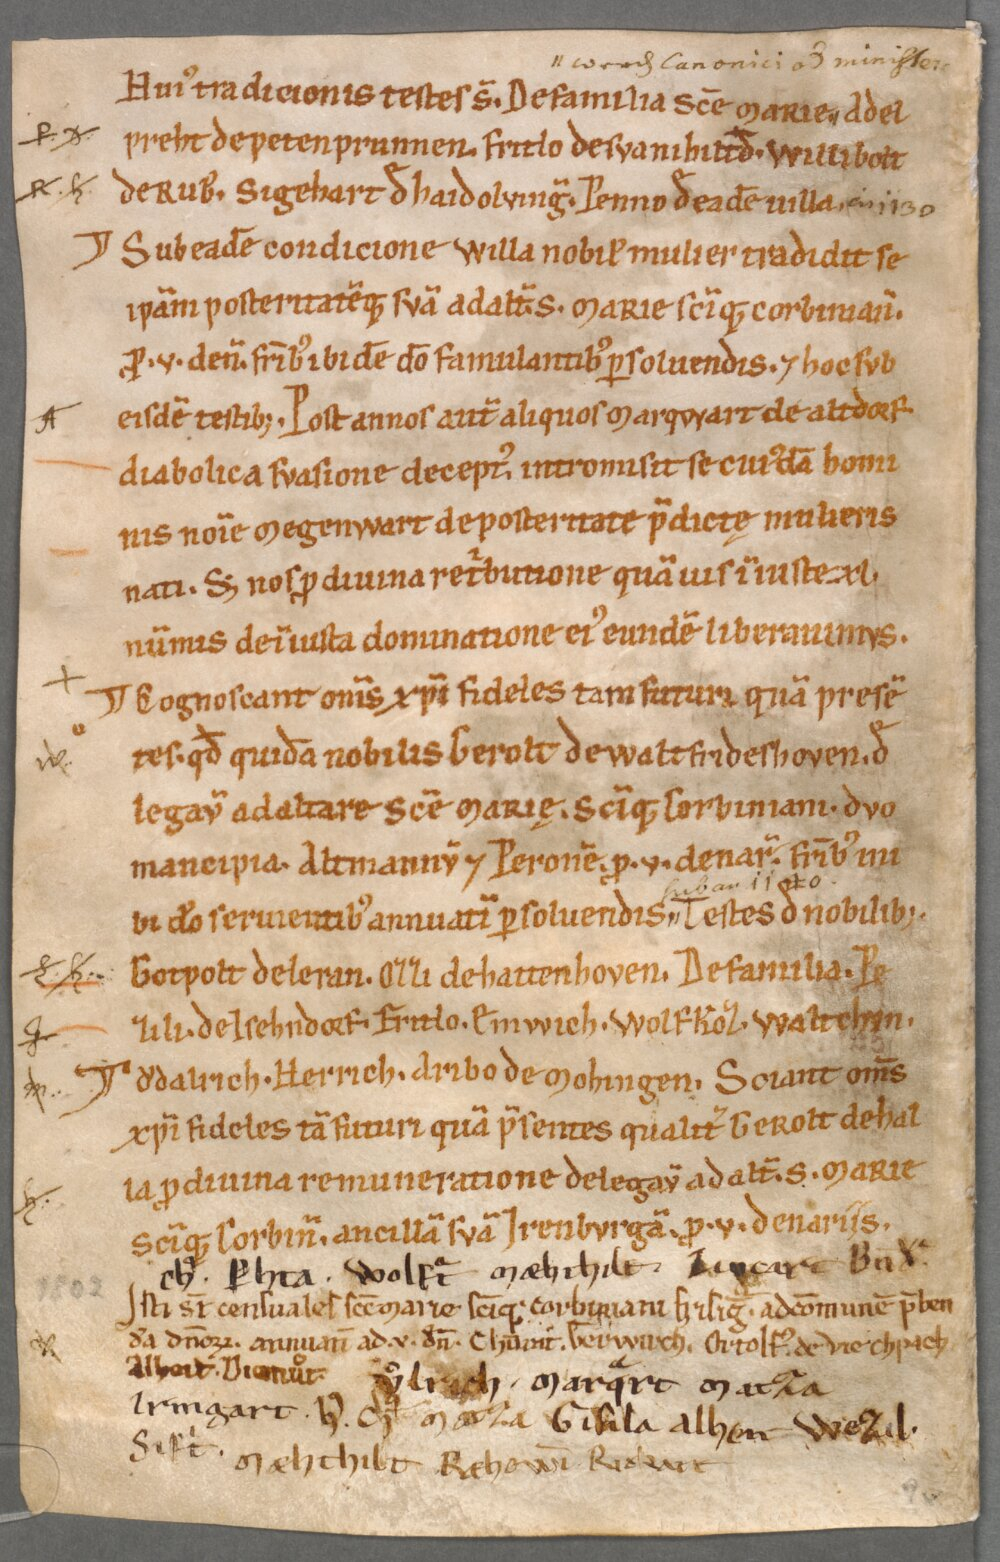 Canonici minister
Hui᾽ tradicionis testes s̄. De familia Scē MARIE. Adel
preht de petenprunnen. Fritlo de svanihilid̄. Willibolt
de Rub̄. Sigehart d̄ haidolving̅. Penno d̄ eadē uilla. 1130
Sub eadē condicione Willa nobil̄ mulier tradidit se
ipsām posteritatēq; svā ad alt̄. S. MARIE scīq; corbiniani̅.
ꝓ. v. deñ. fr̄ib᾽ ibidē dō famulantib᾽ ꝑsoluendis. ⁊ hoc svb
eisdē testib;. Post annos aut̄ aliquos Marqwart de altdorf
diabolica svasione decept᾽. intromisit se cui᾽dā homi
nis noīe Megenwart de posteritate p̄dictę mulieris
nati. S; nos ꝓ diuina ret̉butione quāuis īiuste xl.
nūmis de īiusta dominatione ei᾽ eundē liberauimvs.
Cognoscant om̄s xp̄i fideles tam futuri quā presē
tes. qd̄ quidā nobilis Gerolt de Waltfrideshoven. d̄
legav̄ ad altare Scē MARIĘ. Scīq; Corbiniani. dvo
mancipia. Altmannv̄ ⁊ Peronē. ꝓ. v. denar̄. fr̄ib᾽ ini
1140
bi dō seruientib᾽ annuatī ꝑsoluendis. Testes d̄ nobilib;.
Gotpolt de leran. Otti de hattenhoven. De familia. Pe
zili. de Isehndorf. Fritlo. Einwich. Wolfkōz. Waltchvn.
Ǒdalrich. Herrich. Aribo de Mohingen. Sciant om̄s
xp̄i fideles tā futuri quā p̄sentes qualit᾽ Gerolt de hal
la ꝓ diuina remuneratione delegav̄ ad alt̄. S. MARIE
Scīq; Corbiñ. ancillā svā Irenbvrgā. ꝓ. v. denarijs.
Wolft̄ Mæhthilt
Isti sr̄ censuales scē marie scīq; corbiniani frising̅. ad cōmunē p̄ben
dā dn̄oꝝ. annuatī ad. v. d̄n. Chunr̄. Berwich. Ortolf᾽. de viechpach
Alheit. Diemůt. Ǔlrich. Marqrt
Irmgart. Gisila Alheit Wezil.
Sifr̄t. Mæhthilt